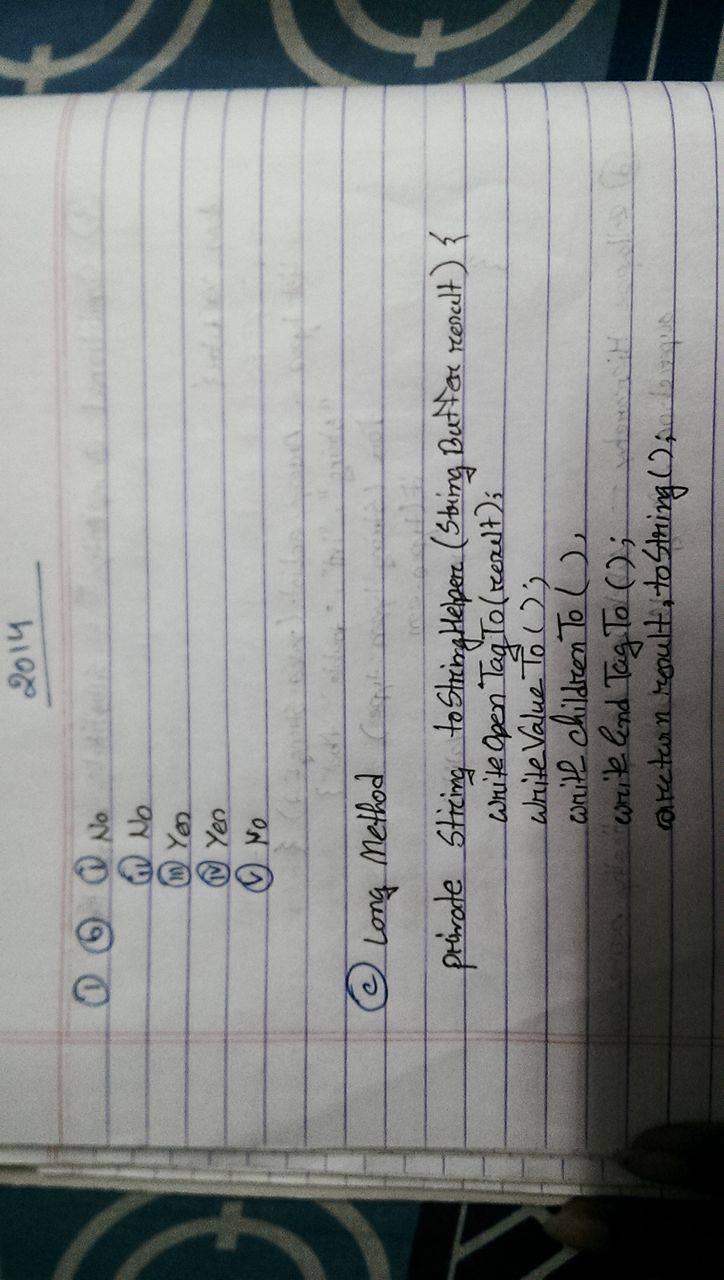 2014
① ⓑ ⓘ No
ⓘⓘ No
ⓘⓘⓘ Yes
ⓘⓥ Yes
ⓥ No
ⓒ Long Method
private String toStringHelper (StringButter result) {
writeOpenTagTo(result);
writeValueTo();
write childrenTo(),
write EndTagTo();
return result, toString();